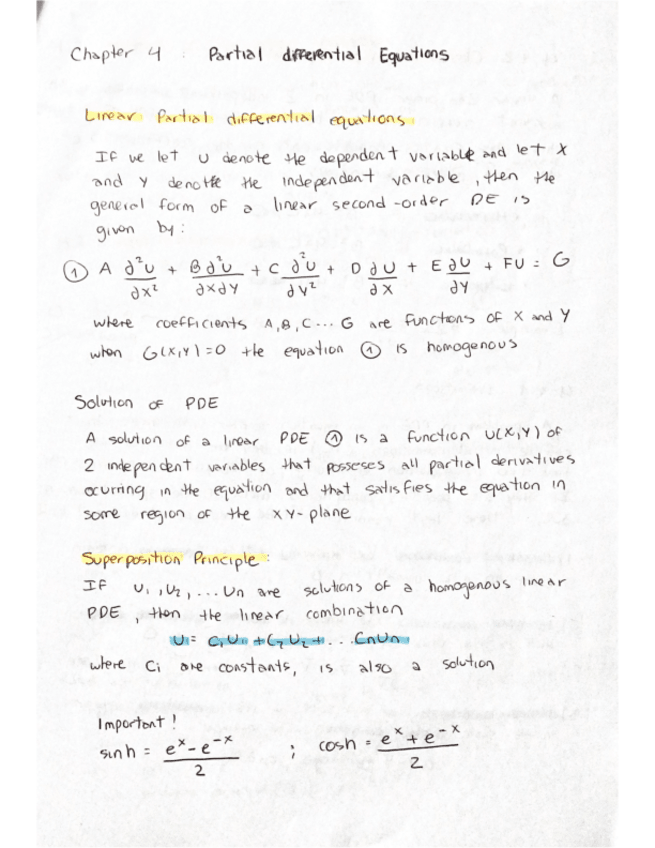 Chapter 4 . Partial differential Equations
Linear Partial differential equations
If we let U denote the dependent variable and let X
and Y denote the independent variable, then the
general form of a linear second-order DE is
given by:
① A ∂²U/∂x² + B∂²U/∂x∂y + C ∂²U/∂y² + D ∂U/∂x + E ∂U/∂y + FU = G
where coefficients A,B,C... G are functions of X and Y
when G(X,Y)=0 the equation ① is homogenous
Solution of PDE
A solution of a linear PDE ① is a function U(X,Y) of
2 independent variables that posseses all partial derivatives
ocurring in the equation and that satisfies the equation in
some region of the XY-plane
Superposition Principle:
If U₁,U₂,...Un are solutions of a homogenous linear
PDE, then the linear combination
U= C₁U₁+C₂U₂+...CnUn
where Ci are constants, is also a solution
Important!
sinh = (eˣ-e⁻ˣ)/2 ; cosh = (eˣ+e⁻ˣ)/2